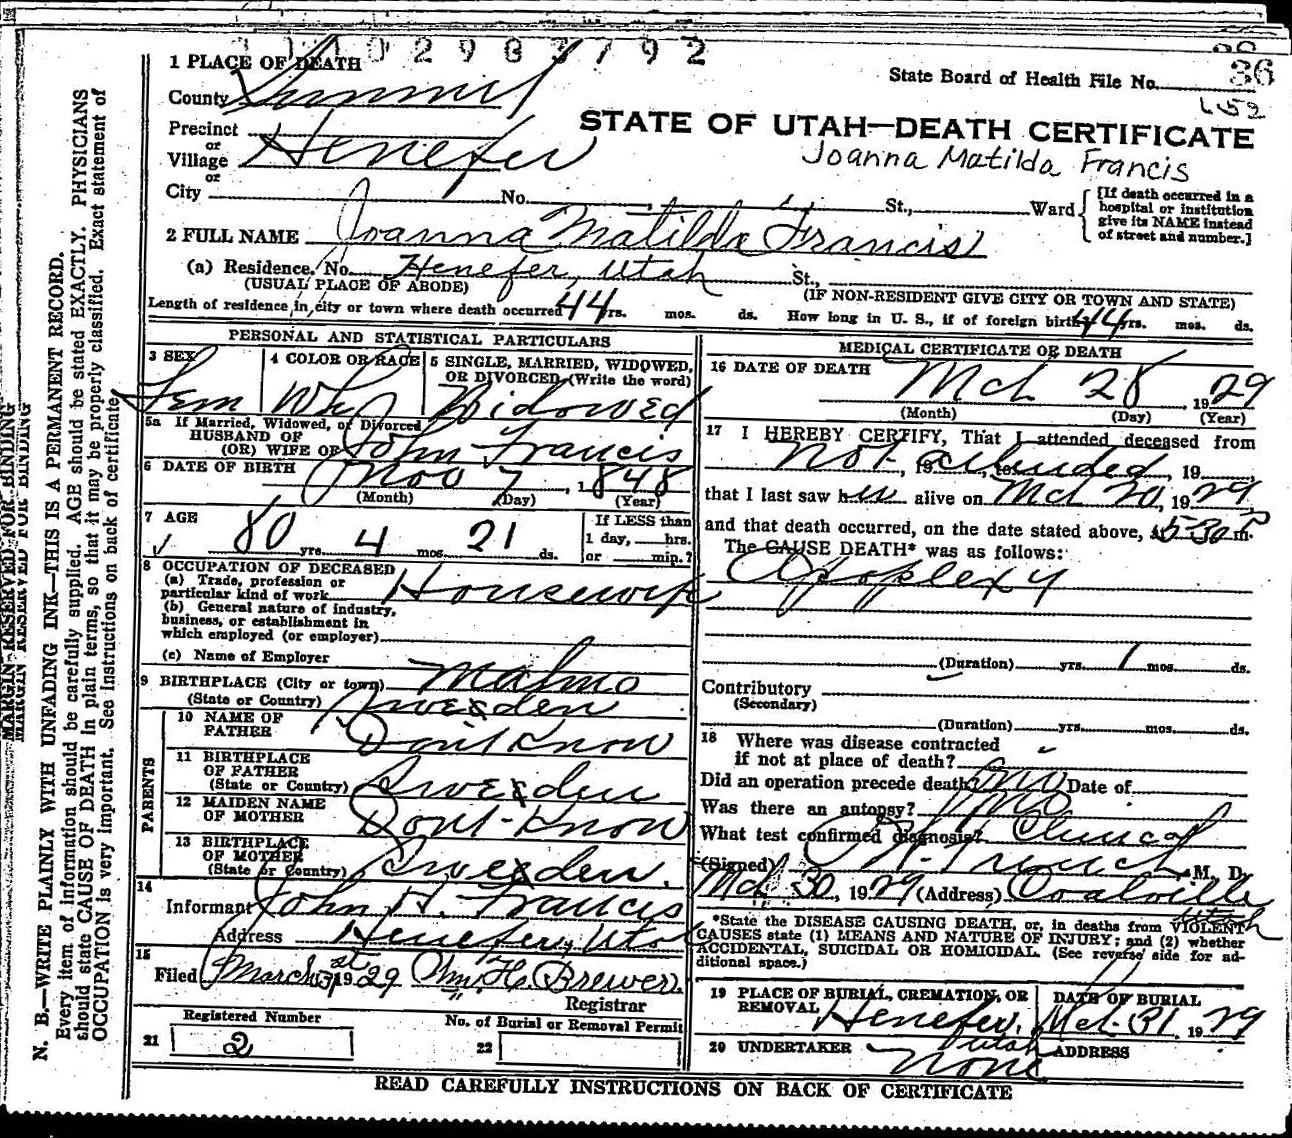 3 0 4 0 2 9 8 3 7 9 2
1 PLACE OF DEATH
State Board of Health File No. 36
County Summit
652
STATE OF UTAH—DEATH CERTIFICATE
Joanna Matilda Francis
Precinct
or
Village Henefer
or
City No. St., Ward
[If death occurred in a
hospital or institution
give its NAME instead
of street and number.]
2 FULL NAME Joanna Matilda Francis
(a) Residence. No. Henefer, Utah St.,
(USUAL PLACE OF ABODE) (IF NON-RESIDENT GIVE CITY OR TOWN AND STATE)
Length of residence in city or town where death occurred 44 yrs. mos. ds. How long in U. S., if of foreign birth 44 yrs. mos. ds.
PERSONAL AND STATISTICAL PARTICULARS
3 SEX Fem
4 COLOR OR RACE
5 SINGLE, MARRIED, WIDOWED,
OR DIVORCED (Write the word)
Widowed
5a If Married, Widowed, or Divorced
HUSBAND OF
(OR) WIFE OF John Francis
6 DATE OF BIRTH Nov 7, 1848
(Month) (Day) (Year)
7 AGE
80 yrs. 4 mos. 21 ds.
If LESS than
1 day, hrs.
or min.?
8 OCCUPATION OF DECEASED
(a) Trade, profession or
particular kind of work Housewife
(b) General nature of industry,
business, or establishment in
which employed (or employer)
(c) Name of Employer
9 BIRTHPLACE (City or town) Malmo
(State or Country) Sweden
PARENTS
10 NAME OF
FATHER Dont Know
11 BIRTHPLACE
OF FATHER
(State or Country) Sweden
12 MAIDEN NAME
OF MOTHER Dont-Know
13 BIRTHPLACE
OF MOTHER
(State or Country) Sweden.
14
Informant John H. Francis
Address Henefer, Utah
15
Filed March 31st 1929 Wm. H. Brewer.
Registrar
Registered Number
21 2
No. of Burial or Removal Permit
22
MEDICAL CERTIFICATE OF DEATH
16 DATE OF DEATH
Mch 28, 1929
(Month) (Day) (Year)
17 I HEREBY CERTIFY, That I attended deceased from
not, 19 attended, 19
that I last saw her alive on Mch 20, 1929
and that death occurred, on the date stated above, at 5-30 P m.
The CAUSE DEATH* was as follows:
Apoplexy
(Duration) yrs. 1 mos. ds.
Contributory
(Secondary)
(Duration) yrs. mos. ds.
18 Where was disease contracted
if not at place of death?
Did an operation precede death? no Date of
Was there an autopsy? no
What test confirmed diagnosis? Clinical
(Signed) M. D.
Mch 30, 1929 (Address) Coalville
Utah
*State the DISEASE CAUSING DEATH, or, in deaths from VIOLENT
CAUSES state (1) MEANS AND NATURE OF INJURY; and (2) whether
ACCIDENTAL, SUICIDAL OR HOMICIDAL. (See reverse side for ad-
ditional space.)
19 PLACE OF BURIAL, CREMATION, OR
REMOVAL Henefer,
Utah
DATE OF BURIAL
Mch. 31 1929
20 UNDERTAKER none
ADDRESS
READ CAREFULLY INSTRUCTIONS ON BACK OF CERTIFICATE
MARGIN RESERVED FOR BINDING
MARGIN RESERVED FOR BINDING
N. B.—WRITE PLAINLY WITH UNFADING INK—THIS IS A PERMANENT RECORD.
Every item of information should be carefully supplied. AGE should be stated EXACTLY. PHYSICIANS
should state CAUSE OF DEATH in plain terms, so that it may be properly classified. Exact statement of
OCCUPATION is very important. See instructions on back of certificate.